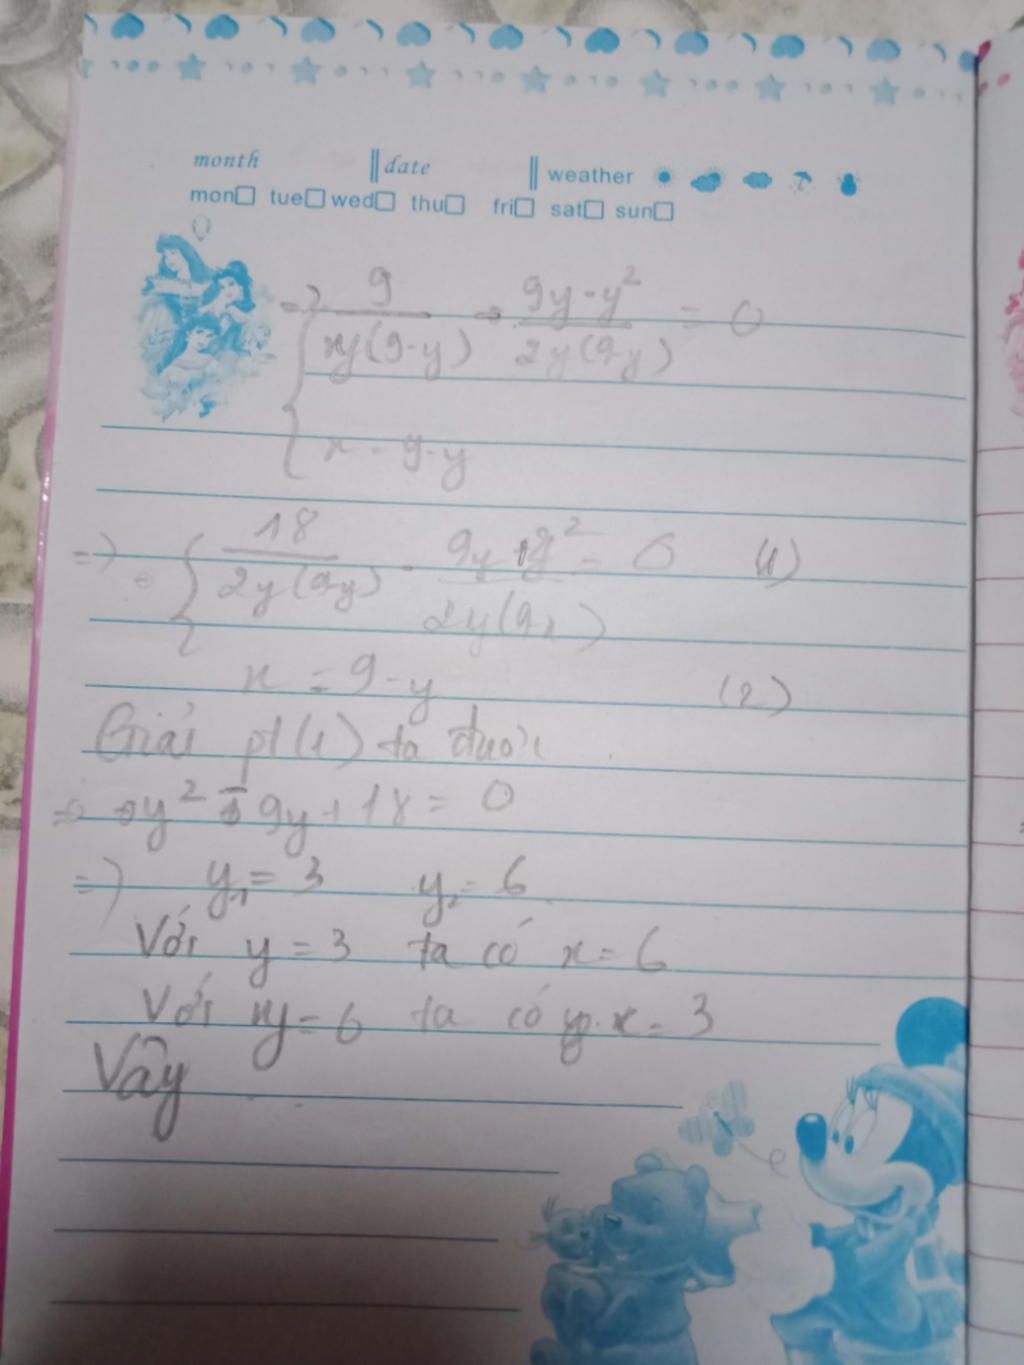 month date weather
mon tue wed thu fri sat sun
=> 9/(xy(9-y)) - (9y-y²)/(2y(9-y)) = 0
x = 9-y
=> 18/(2y(9-y)) - (9y-y²)/ = 0 (1)
x = 9-y (2)
Giải pt (1) ta được
y² - 9y + 18 = 0
=> y₁ = 3 y₂ = 6
Với y = 3 ta có x = 6
Với y = 6 ta có x = 3
Vậy